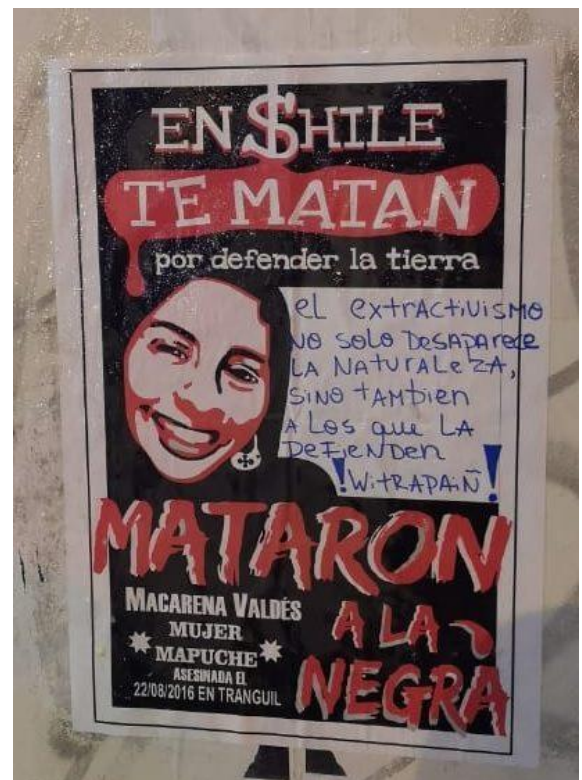 EN $HILE
TE MATAN
por defender la tierra
el extractivismo
no solo desaparece
la naturaleza,
sino tambien
a los que la
defienden
¡WITRAPAIÑ!
MATARON
A LA
NEGRA
MACARENA VALDÉS
MUJER
MAPUCHE
ASESINADA EL
22/08/2016 EN TRANGUIL